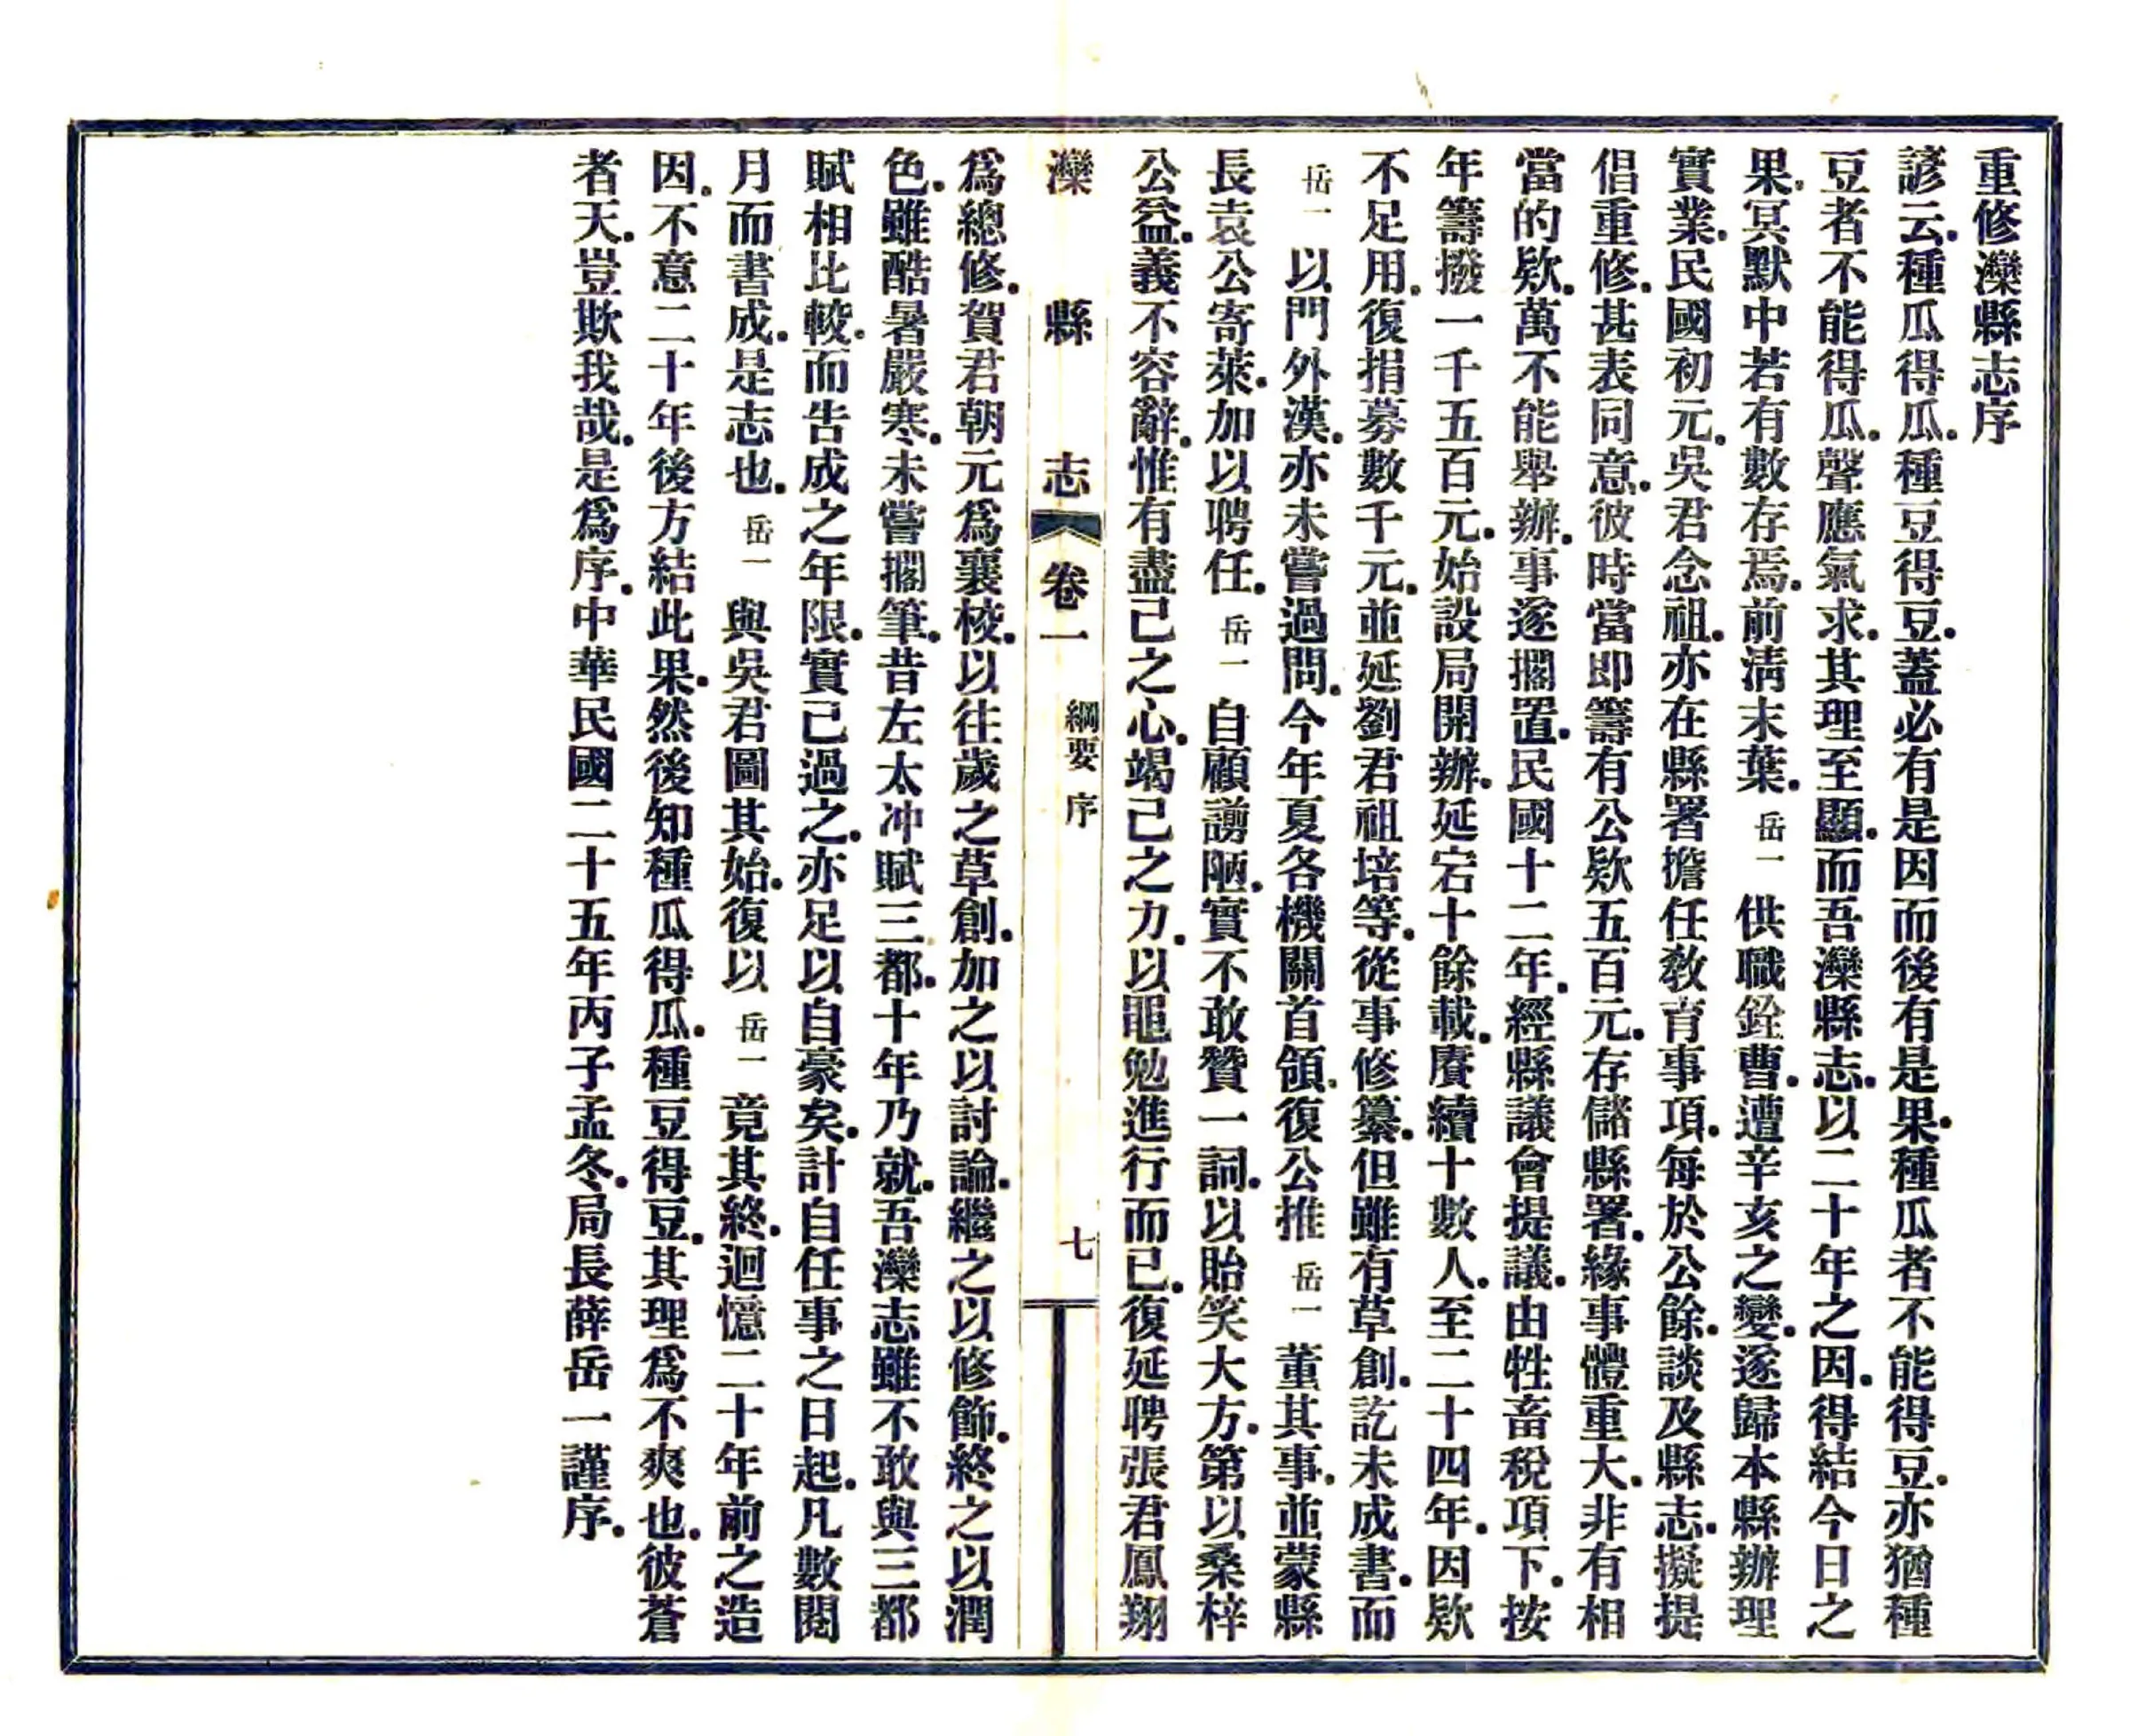 重修灤縣志序
諺云.種瓜得瓜.種豆得豆.蓋必有是因而後有是果.種瓜者不能得豆.亦猶種
豆者不能得瓜.聲應氣求.其理至顯.而吾灤縣志.以二十年之因.得結今日之
果.冥默中若有數存焉.前淸末葉.岳一供職銓曹.遭辛亥之變.遂歸本縣辦理
實業.民國初元.吳君念祖.亦在縣署擔任敎育事項.每於公餘.談及縣志.擬提
倡重修.甚表同意.彼時當即籌有公欵五百元.存儲縣署.緣事體重大.非有相
當的欵.萬不能舉辦.事遂擱置.民國十二年.經縣議會提議.由牲畜稅項下.按
年籌撥一千五百元.始設局開辦.延宕十餘載.賡續十數人.至二十四年.因欵
不足用.復捐募數千元.並延劉君祖培等.從事修纂.但雖有草創.訖未成書.而
岳一以門外漢.亦未嘗過問.今年夏各機關首領.復公推岳一董其事.並蒙縣
長袁公寄萊.加以聘任.岳一自顧謭陋.實不敢贊一詞.以貽笑大方.第以桑梓
公益.義不容辭.惟有盡己之心.竭己之力.以黽勉進行而已.復延聘張君鳳翔
灤縣志 卷一 綱要 序 七
爲總修.賀君朝元爲襄校.以往歲之草創.加之以討論.繼之以修飾.終之以潤
色.雖酷暑嚴寒.未嘗擱筆.昔左太冲賦三都.十年乃就.吾灤志雖不敢與三都
賦相比較.而告成之年限.實已過之.亦足以自豪矣.計自任事之日起.凡數閱
月而書成.是志也.岳一與吳君圖其始.復以岳一竟其終.迴憶二十年前之造
因.不意二十年後方結此果.然後知種瓜得瓜.種豆得豆.其理爲不爽也.彼蒼
者天.豈欺我哉.是爲序.中華民國二十五年丙子孟冬.局長薛岳一謹序.